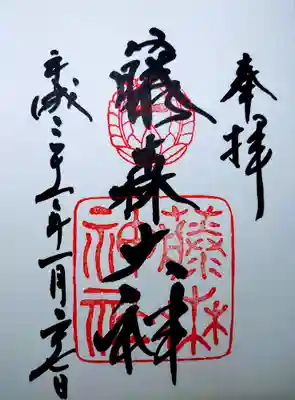 奉拝
藤森大神
平成三十一年一月二七日
藤森
神社